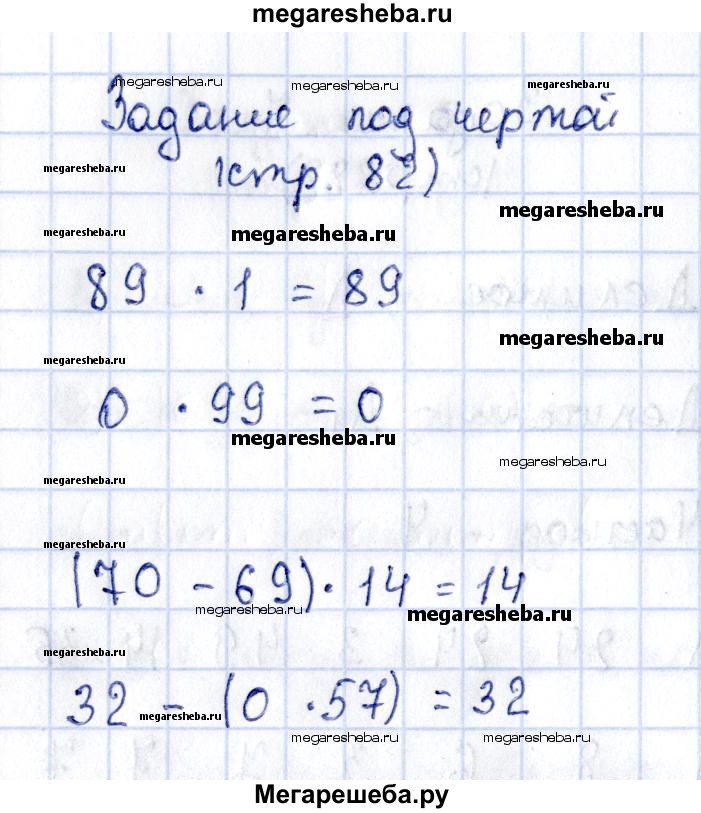 megaresheba.ru
megaresheba.ru megaresheba.ru megaresheba.ru
Задание под чертой
megaresheba.ru
(стр. 82)
megaresheba.ru
megaresheba.ru megaresheba.ru
89 · 1 = 89
megaresheba.ru
megaresheba.ru
0 · 99 = 0
megaresheba.ru
megaresheba.ru
megaresheba.ru
megaresheba.ru
(70 - 69) · 14 = 14
megaresheba.ru megaresheba.ru
megaresheba.ru
32 - (0 · 57) = 32
megaresheba.ru
megaresheba.ru megaresheba.ru
Мегарешеба.ру